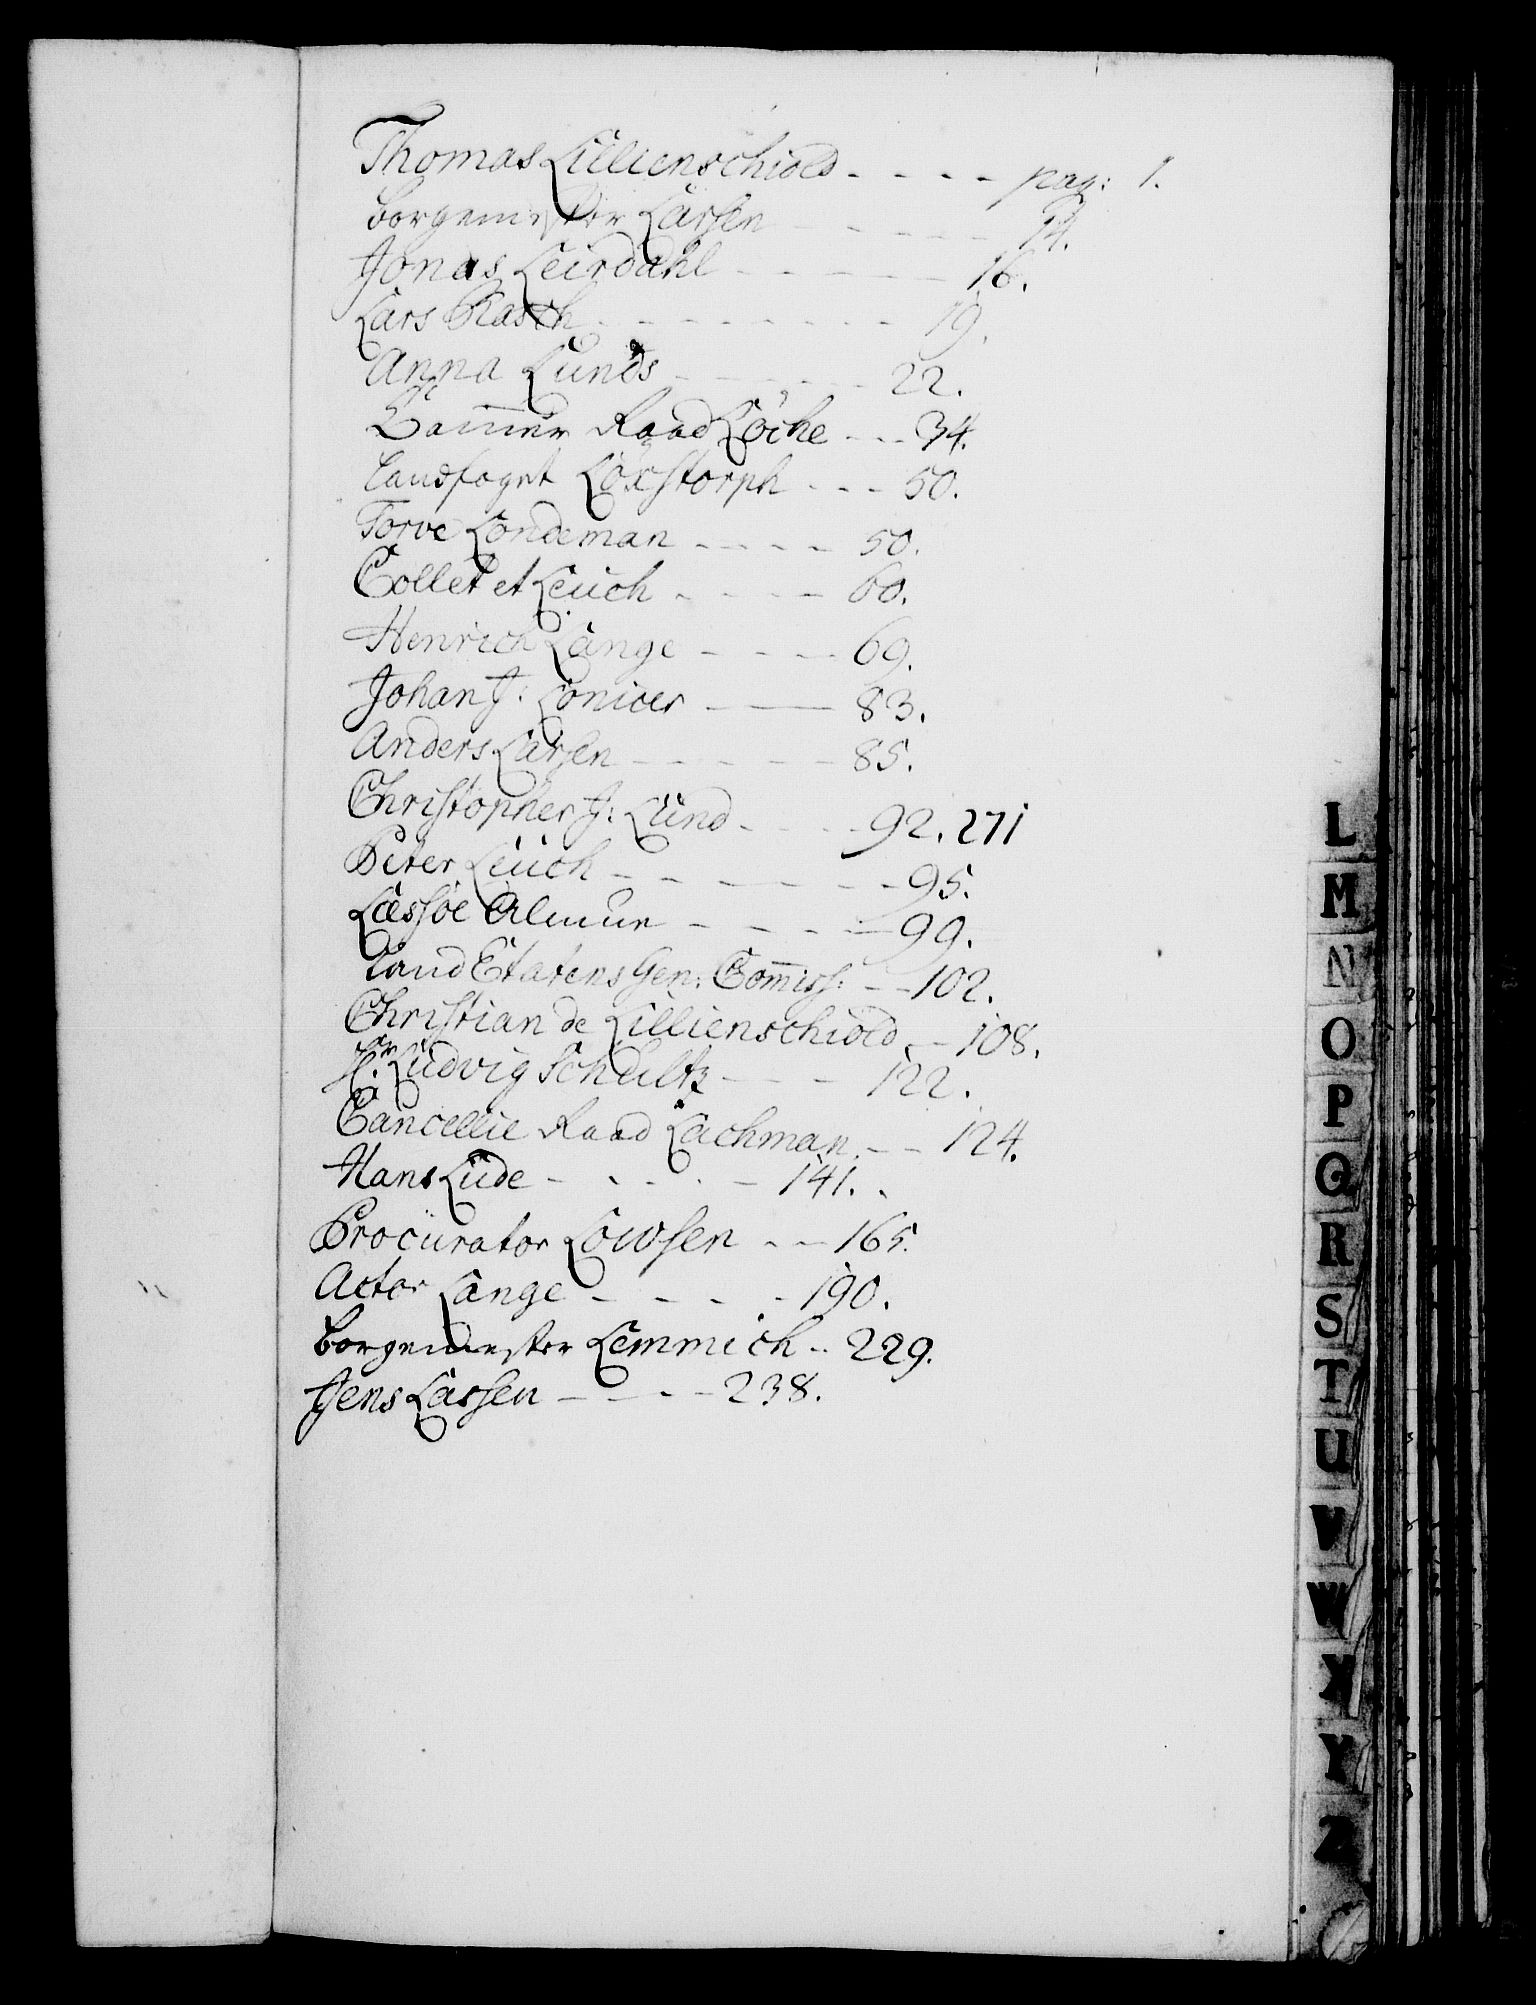 Thomas Lillienschiold - - - - pag: 1.
Borgemester Larsen - - - - - - 14.
Jonas Leirdahl - - - - - 16.
Lars Rasch - - - - - - - - 19.
Anna Lunds - - - - - 22.
Cammer Raad Löche - - - 34.
Landfoget Loxstorph - - - 50.
Torve Londeman - - - - 50.
Collet et Leuch - - - - 60.
Henrich Lange - - - - 69.
Johan J: Lonicer - - - 83.
Anders Larsen - - - - - 85.
Christopher J: Lund - - - - 92. 271
Peter Leuch - - - - - - 95.
Læssöe Almue - - - - - 99.
Land Etatens Gen: Com̄iss: - - 102.
Christian de Lillienschiold - - 108.
Hr. Ludvig Schultz - - - 122.
Cancellie Raad Lachman - - 124.
Hans Lude - - - - - 141.
Procurator Lowsen - - - 165.
Actor Lange - - - - - 190.
Borgemester Lemmich - - 229.
Jens Lassen - - - - 238.
L
M
N
O
P
Q
R
S
T
U
V
W
X
Y
Z